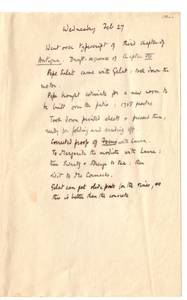 Wednesday Feb 27
Went over typescript of third chapter of
Antigua. Draft sequence of Chapter III
Pepe Salat came with Galat: took down the
motor.
Pepe brought estimate for a new room to
be built over the patio: 1795 pesetas
Took down printed sheets & present them,
ready for folding and sending off
Corrected proof of Focus with Laura.
To Margarita the modista with Laura:
then Twenty & George to tea: then
visit to the Carmens.
Galat can get old posts for the vines, so
this is better than the concrete